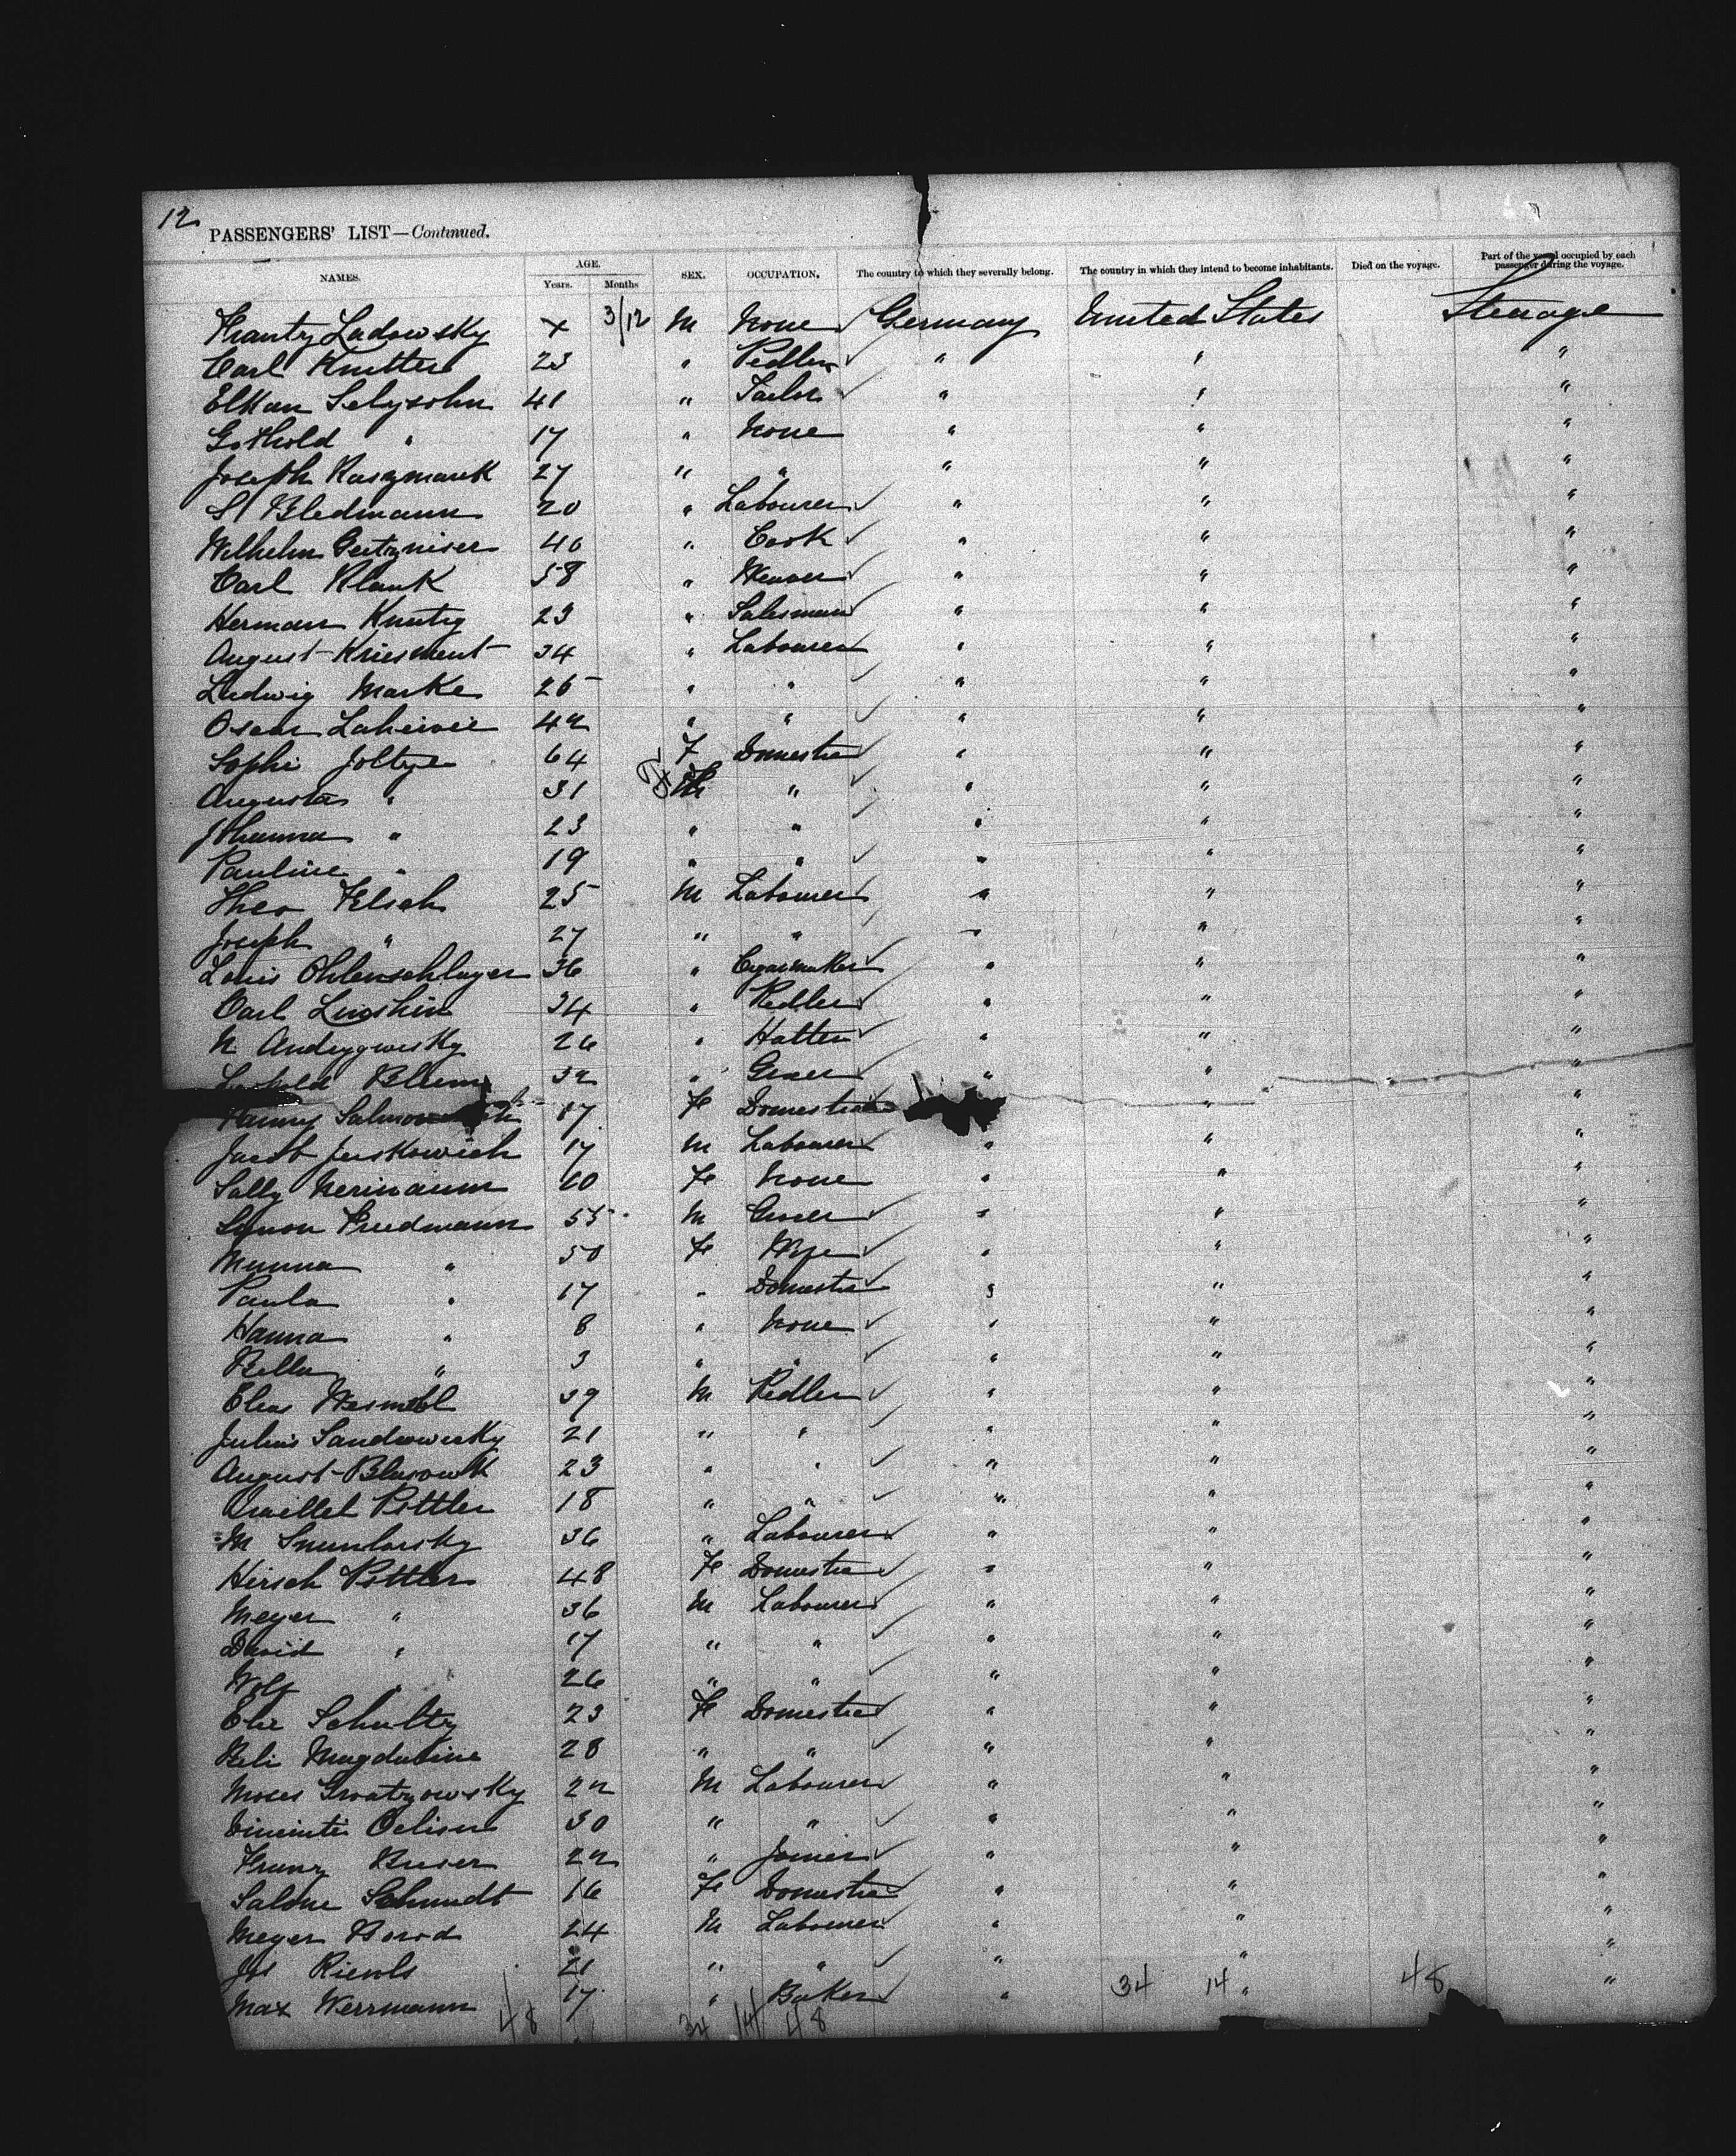 12
PASSENGERS' LIST—Continued.
NAMES. AGE. Years. Months SEX. OCCUPATION. The country to which they severally belong. The country in which they intend to become inhabitants. Died on the voyage. Part of the vessel occupied by each passenger during the voyage.
Frantz Ladowsky + 3/12 M None Germany United States Steerage
Carl Knetter 23 " Pedler " " "
Elkan Selysohn 41 " Tailor " " "
Gothold " 17 " None " " "
Joseph 27 " " " " "
S Bledmann 20 " Labourer " " "
Wilhelm 40 " Cook " " "
Carl Klank 58 " Weaver " " "
Herman Kuntz 23 " Salesman " " "
August 34 " Labourer " " "
Ludwig Marke 26 " " " " "
Oscar 42 " " " " "
Sophi 64 F Domestic " " "
Augusta " 31 " " " "
Johanna " 23 " " " " "
Pauline " 19 " " " " "
Theo Felsch 25 M Labourer " " "
Joseph " 27 " " " " "
Louis Ohlenschlager 36 " Cigarmaker " " "
Carl 34 " Pedler " " "
N 26 " Hatter " " "
Leopold Blum 32 " Grocer " " "
Fanny 17 Fe Domestic " "
Jacob Juskowich 17 M Labourer " " "
Sally 10 Fe None " " "
Simon Friedmann 55 M Grocer " " "
Munna " 50 Fe Wife " " "
Paula " 17 " Domestic " " "
Hanna " 8 " None " " "
Bella " 3 " " " " "
Elias 39 M Pedler " " "
Julius Sandrowsky 21 " " " " "
August 23 " " " " "
Pittler 18 " " " " "
M 36 " Labourer " " "
Hirsch Pittler 48 Fe Domestic " " "
Meyer " 36 M Labourer " " "
David " 17 " " " " "
Wolf " 26 " " " " "
Schultz 23 Fe Domestic " " "
Magdaline 28 " " " " "
Moses 22 M Labourer " " "
30 " " " " "
Franz 22 " Joiner " " "
Salome Schmidt 16 Fe Domestic " " "
Meyer Borod 24 M Labourer " " "
Jos 21 " " " " "
Max Werrmann 17 " Baker " 34 14 " 48 "
48 34 14 48